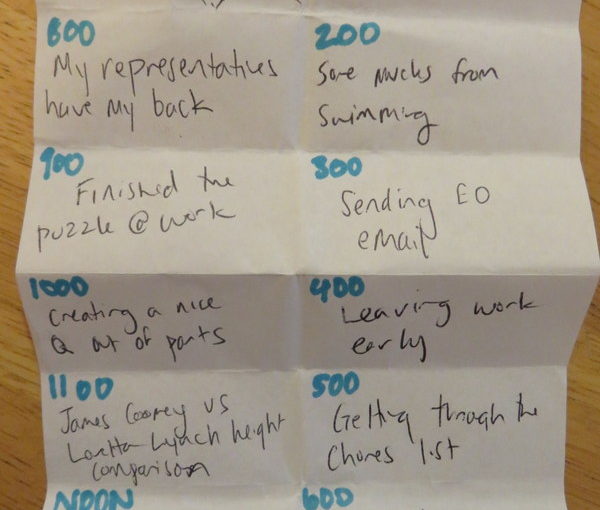 800
My representatives
have my back
900
Finished the
puzzle @ work
1000
Creating a nice
Q out of parts
1100
James Comey vs
Loretta Lynch height
comparison
NOON
200
Sore muscles from
Swimming
300
Sending EO
email
400
Leaving work
early
500
Getting through the
Chores list
600